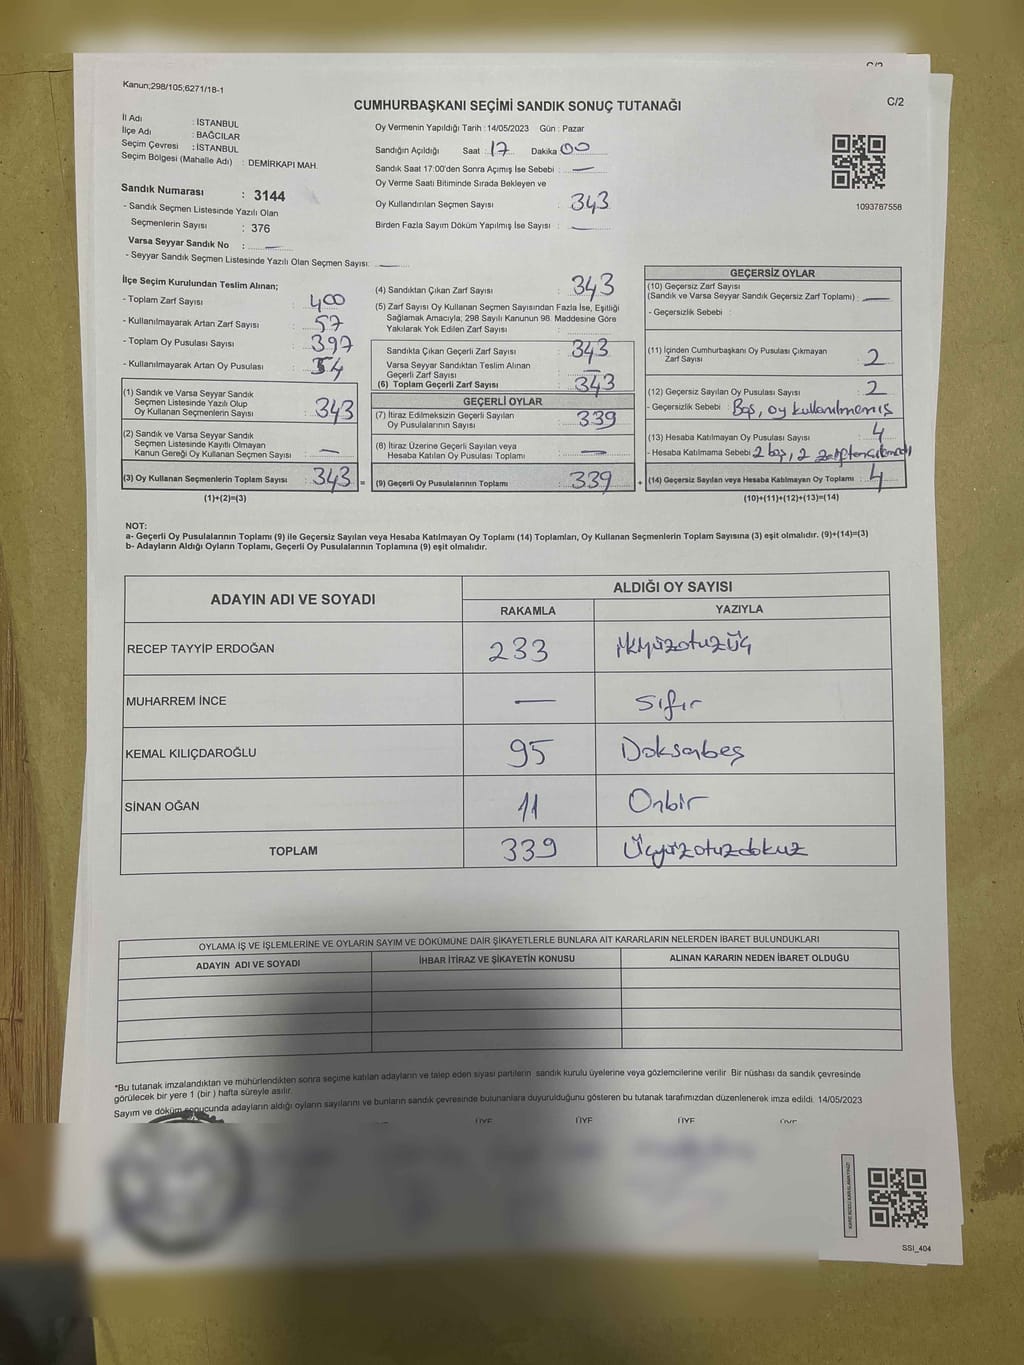 Kanun;298/105;6271/18-1
CUMHURBAŞKANI SEÇİMİ SANDIK SONUÇ TUTANAĞI
C/2
İl Adı : İSTANBUL
İlçe Adı : BAĞCILAR
Seçim Çevresi : İSTANBUL
Seçim Bölgesi (Mahalle Adı) : DEMİRKAPI MAH.
Sandık Numarası : 3144
- Sandık Seçmen Listesinde Yazılı Olan
Seçmenlerin Sayısı : 376
Varsa Seyyar Sandık No : —
- Seyyar Sandık Seçmen Listesinde Yazılı Olan Seçmen Sayısı: —
Oy Vermenin Yapıldığı Tarih : 14/05/2023 Gün : Pazar
Sandığın Açıldığı Saat : 17 Dakika 00
Sandık Saat 17:00'den Sonra Açımış İse Sebebi : —
Oy Verme Saati Bitiminde Sırada Bekleyen ve
Oy Kullandırılan Seçmen Sayısı : 343
Birden Fazla Sayım Döküm Yapılmış İse Sayısı : —
1093787558
İlçe Seçim Kurulundan Teslim Alınan;
- Toplam Zarf Sayısı : 400
- Kullanılmayarak Artan Zarf Sayısı : 57
- Toplam Oy Pusulası Sayısı : 397
- Kullanılmayarak Artan Oy Pusulası : 54
(1) Sandık ve Varsa Seyyar Sandık
Seçmen Listesinde Yazılı Olup
Oy Kullanan Seçmenlerin Sayısı : 343
(2) Sandık ve Varsa Seyyar Sandık
Seçmen Listesinde Kayıtlı Olmayan
Kanun Gereği Oy Kullanan Seçmen Sayısı : —
(3) Oy Kullanan Seçmenlerin Toplam Sayısı : 343 =
(1)+(2)=(3)
(4) Sandıktan Çıkan Zarf Sayısı : 343
(5) Zarf Sayısı Oy Kullanan Seçmen Sayısından Fazla İse, Eşitliği
Sağlamak Amacıyla; 298 Sayılı Kanunun 98. Maddesine Göre
Yakılarak Yok Edilen Zarf Sayısı :
Sandıkla Çıkan Geçerli Zarf Sayısı : 343
Varsa Seyyar Sandıktan Teslim Alınan
Geçerli Zarf Sayısı : —
(6) Toplam Geçerli Zarf Sayısı : 343
GEÇERLİ OYLAR
(7) İtiraz Edilmeksizin Geçerli Sayılan
Oy Pusulasının Sayısı : 339
(8) İtiraz Üzerine Geçerli Sayılan veya
Hesaba Katılan Oy Pusulası Toplamı : —
(9) Geçerli Oy Pusulalarının Toplamı : 339 +
GEÇERSİZ OYLAR
(10) Geçersiz Zarf Sayısı
(Sandık ve Varsa Seyyar Sandık Geçersiz Zarf Toplamı) : —
- Geçersizlik Sebebi :
(11) İçinden Cumhurbaşkanı Oy Pusulası Çıkmayan
Zarf Sayısı : 2
(12) Geçersiz Sayılan Oy Pusulası Sayısı : 2
- Geçersizlik Sebebi : Boş, oy kullanılmamış
(13) Hesaba Katılmayan Oy Pusulası Sayısı : 4
- Hesaba Katılmama Sebebi : 2 boş, 2 zarftan çıkmadı
(14) Geçersiz Sayılan veya Hesaba Katılmayan Oy Toplamı : 4
(10)+(11)+(12)+(13)=(14)
NOT:
a- Geçerli Oy Pusulalarının Toplamı (9) ile Geçersiz Sayılan veya Hesaba Katılmayan Oy Toplamı (14) Toplamları, Oy Kullanan Seçmenlerin Toplam Sayısına (3) eşit olmalıdır. (9)+(14)=(3)
b- Adayların Aldığı Oyların Toplamı, Geçerli Oy Pusulalarının Toplamına (9) eşit olmalıdır.
ADAYIN ADI VE SOYADI ALDIĞI OY SAYISI
RAKAMLA YAZIYLA
RECEP TAYYİP ERDOĞAN 233 ikiyüzotuzüç
MUHARREM İNCE — Sıfır
KEMAL KILIÇDAROĞLU 95 Doksanbeş
SİNAN OĞAN 11 Onbir
TOPLAM 339 Üçyüzotuzdokuz
OYLAMA İŞ VE İŞLEMLERİNE VE OYLARIN SAYIM VE DÖKÜMÜNE DAİR ŞİKAYETLERLE BUNLARA AİT KARARLARIN NELERDEN İBARET BULUNDUKLARI
ADAYIN ADI VE SOYADI İHBAR İTİRAZ VE ŞİKAYETİN KONUSU ALINAN KARARIN NEDEN İBARET OLDUĞU
*Bu tutanak imzalandıktan ve mühürlendikten sonra seçime katılan adayların ve talep eden siyasi partilerin sandık kurulu üyelerine veya gözlemcilerine verilir. Bir nüshası da sandık çevresinde
görülecek bir yere 1 (bir) hafta süreyle asılır.
Sayım ve döküm sonucunda adayların aldığı oyların sayılarını ve bunların sandık çevresinde bulunanlara duyurulduğunu gösteren bu tutanak tarafımızdan düzenlenerek imza edildi. 14/05/2023
ÜYE ÜYE ÜYE ÜYE
SSI_404